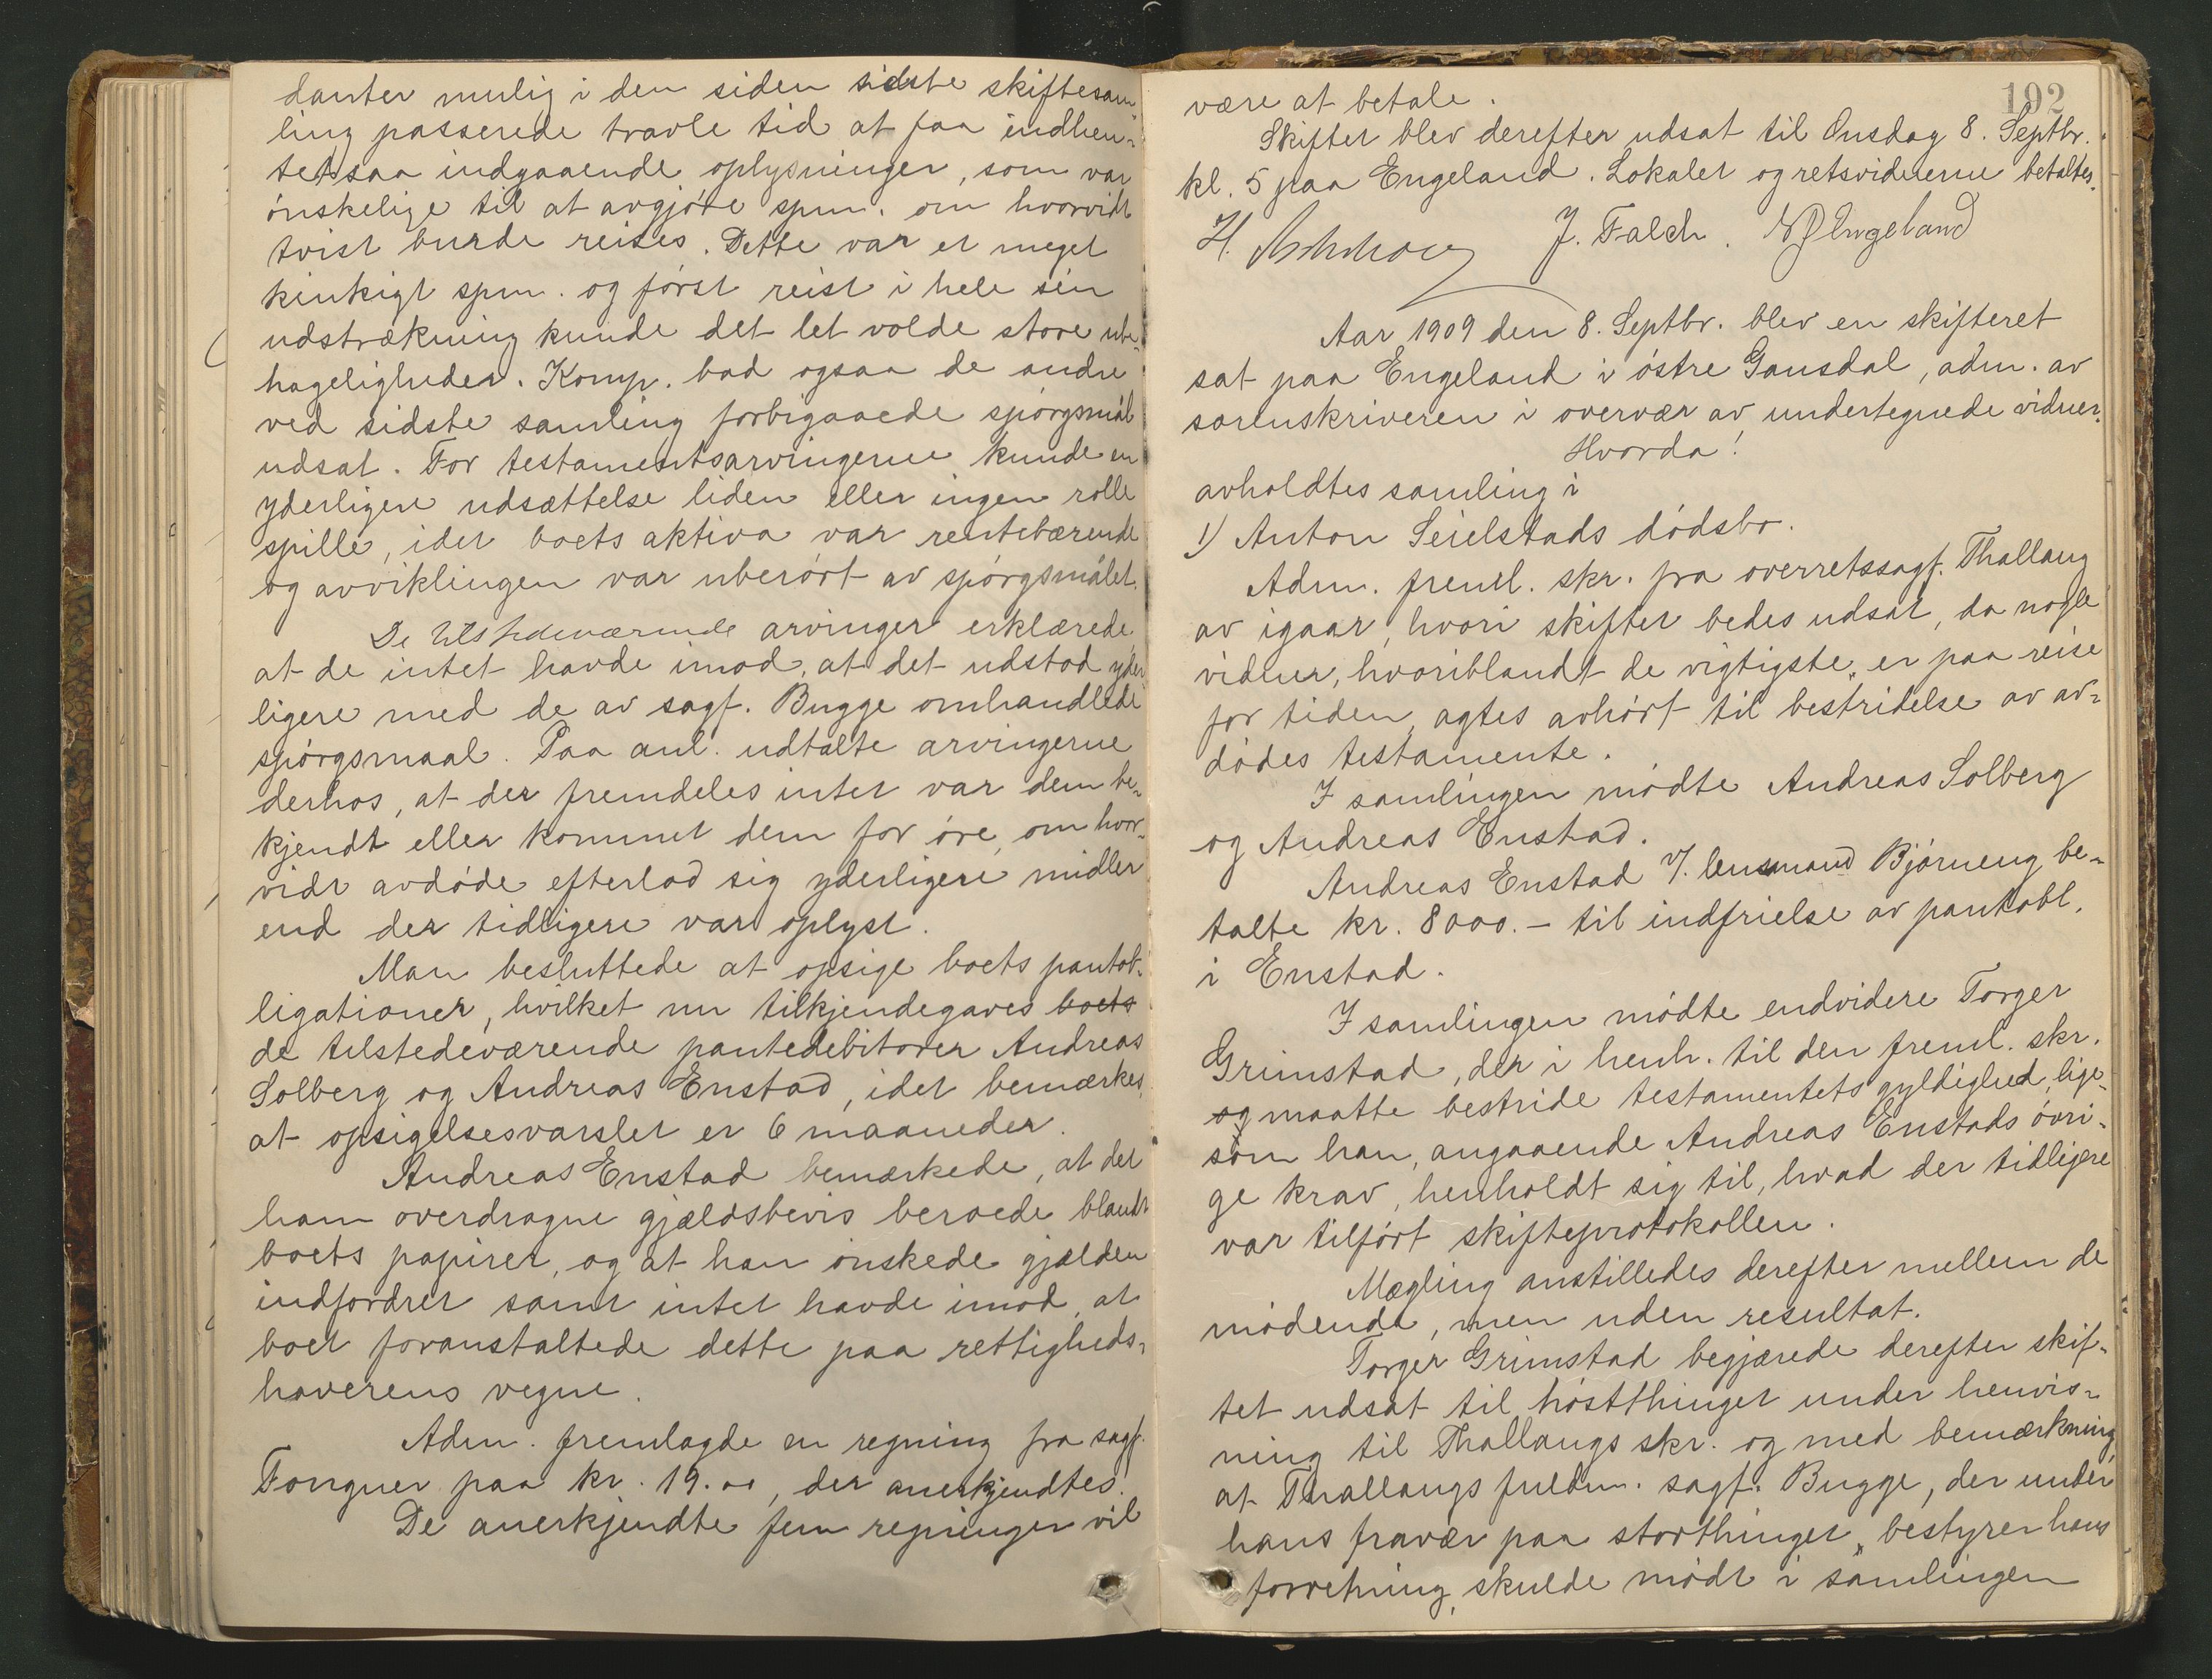 danter mulig i den siden sidste skiftesam
ling passerede travle tid at faa indhen-
tet saa indgaaende oplysninger, som var
ønskelige til at avgjøre spm. om hvorvidt
tvist burde reises. Dette var et meget
kinkigt spm. og først reist i hele sin
udstrækning kunde det let volde store ube-
hageligheder. Komp. bad ogsaa de andre
ved sidste samling forbigaaede spørgsmål
udsat. For testamentsarvingerne kunde en
yderligere udsættelse liden eller ingen rolle
spille, idet boets aktiva var rentebærende
og avviklingen var uberørt av spørgsmålet.
De tilstedeværende arvinger erklærede
at de intet havde imod, at det udstod yder
ligere med de av sagf. Bugge omhandlede
spørgsmaal. Paa anl. udtalte arvingerne
derhos, at der fremdeles intet var dem be-
kjendt eller kommet dem for øre, om hvor-
vidt avdøde efterlod sig yderligere midler
end der tidligere var oplyst.
Man besluttede at opsige boets pantob-
ligationer, hvilket nu tilkjendegaves boets
de tilstedeværende pantedebitorer Andreas
Solberg og Andreas Enstad, idet bemærkes,
at opsigelsesvarslet er 6 maaneder.
Andreas Enstad bemærkede, at det
ham overdragne gjældsbevis beroede blandt
boets papirer, og at han ønskede gjælden
indfordret samt intet havde imod, at
boet foranstaltede dette paa rettigheds-
haverens vegne.
Adm. fremlagde en regning fra sagf.
Fongner paa kr. 19.00, der anerkjendtes.
De anerkjendte fem regninger vil
192
være at betale.
Skiftet blev derefter udsat til Onsdag 8. Septbr.
kl. 5 paa Engeland. Lokalet og retsvidnerne betaltes.
H. J. Falch. Engeland
Aar 1909 den 8. Septbr. blev en skifteret
sat paa Engeland i østre Gausdal, adm. av
sorenskriveren i overvær av undertegnede vidner.
Hvorda!
avholdtes samling i
1) Anton Seielstads dødsbo.
Adm. freml. skr. fra overretssagf. Thallaug
av igaar, hvori skiftet bedes udsat, da nogle
vidner, hvoriblandt de vigtigste, er paa reise
for tiden, agtes avhørt til bestridelse av av-
dødes testamente.
I samlingen mødte Andreas Solberg
og Andreas Enstad.
Andreas Enstad v/. lensmand Bjørneng be-
talte kr. 8000.- til indfrielse av pantobl.
i Enstad.
I samlingen mødte endvidere Torger
Grimstad, der i henh. til den freml. skr.
og maatte bestride testamentets gyldighed, lige-
som han, angaaende Andreas Enstads øvri-
ge krav, henholdt sig til, hvad der tidligere
var tilført skifteprotokollen.
Mægling anstilledes derefter mellem de
mødende, men uden resultat.
Torger Grimstad begjærede derefter skif-
tet udsat til høstthinget under henvis-
ning til Thallaugs skr. og med bemærkning,
at Thallaugs fuldm. sagf. Bugge, der under
hans fravær paa storthinget, bestyrer hans
forretning, skulde mødt i samlingen